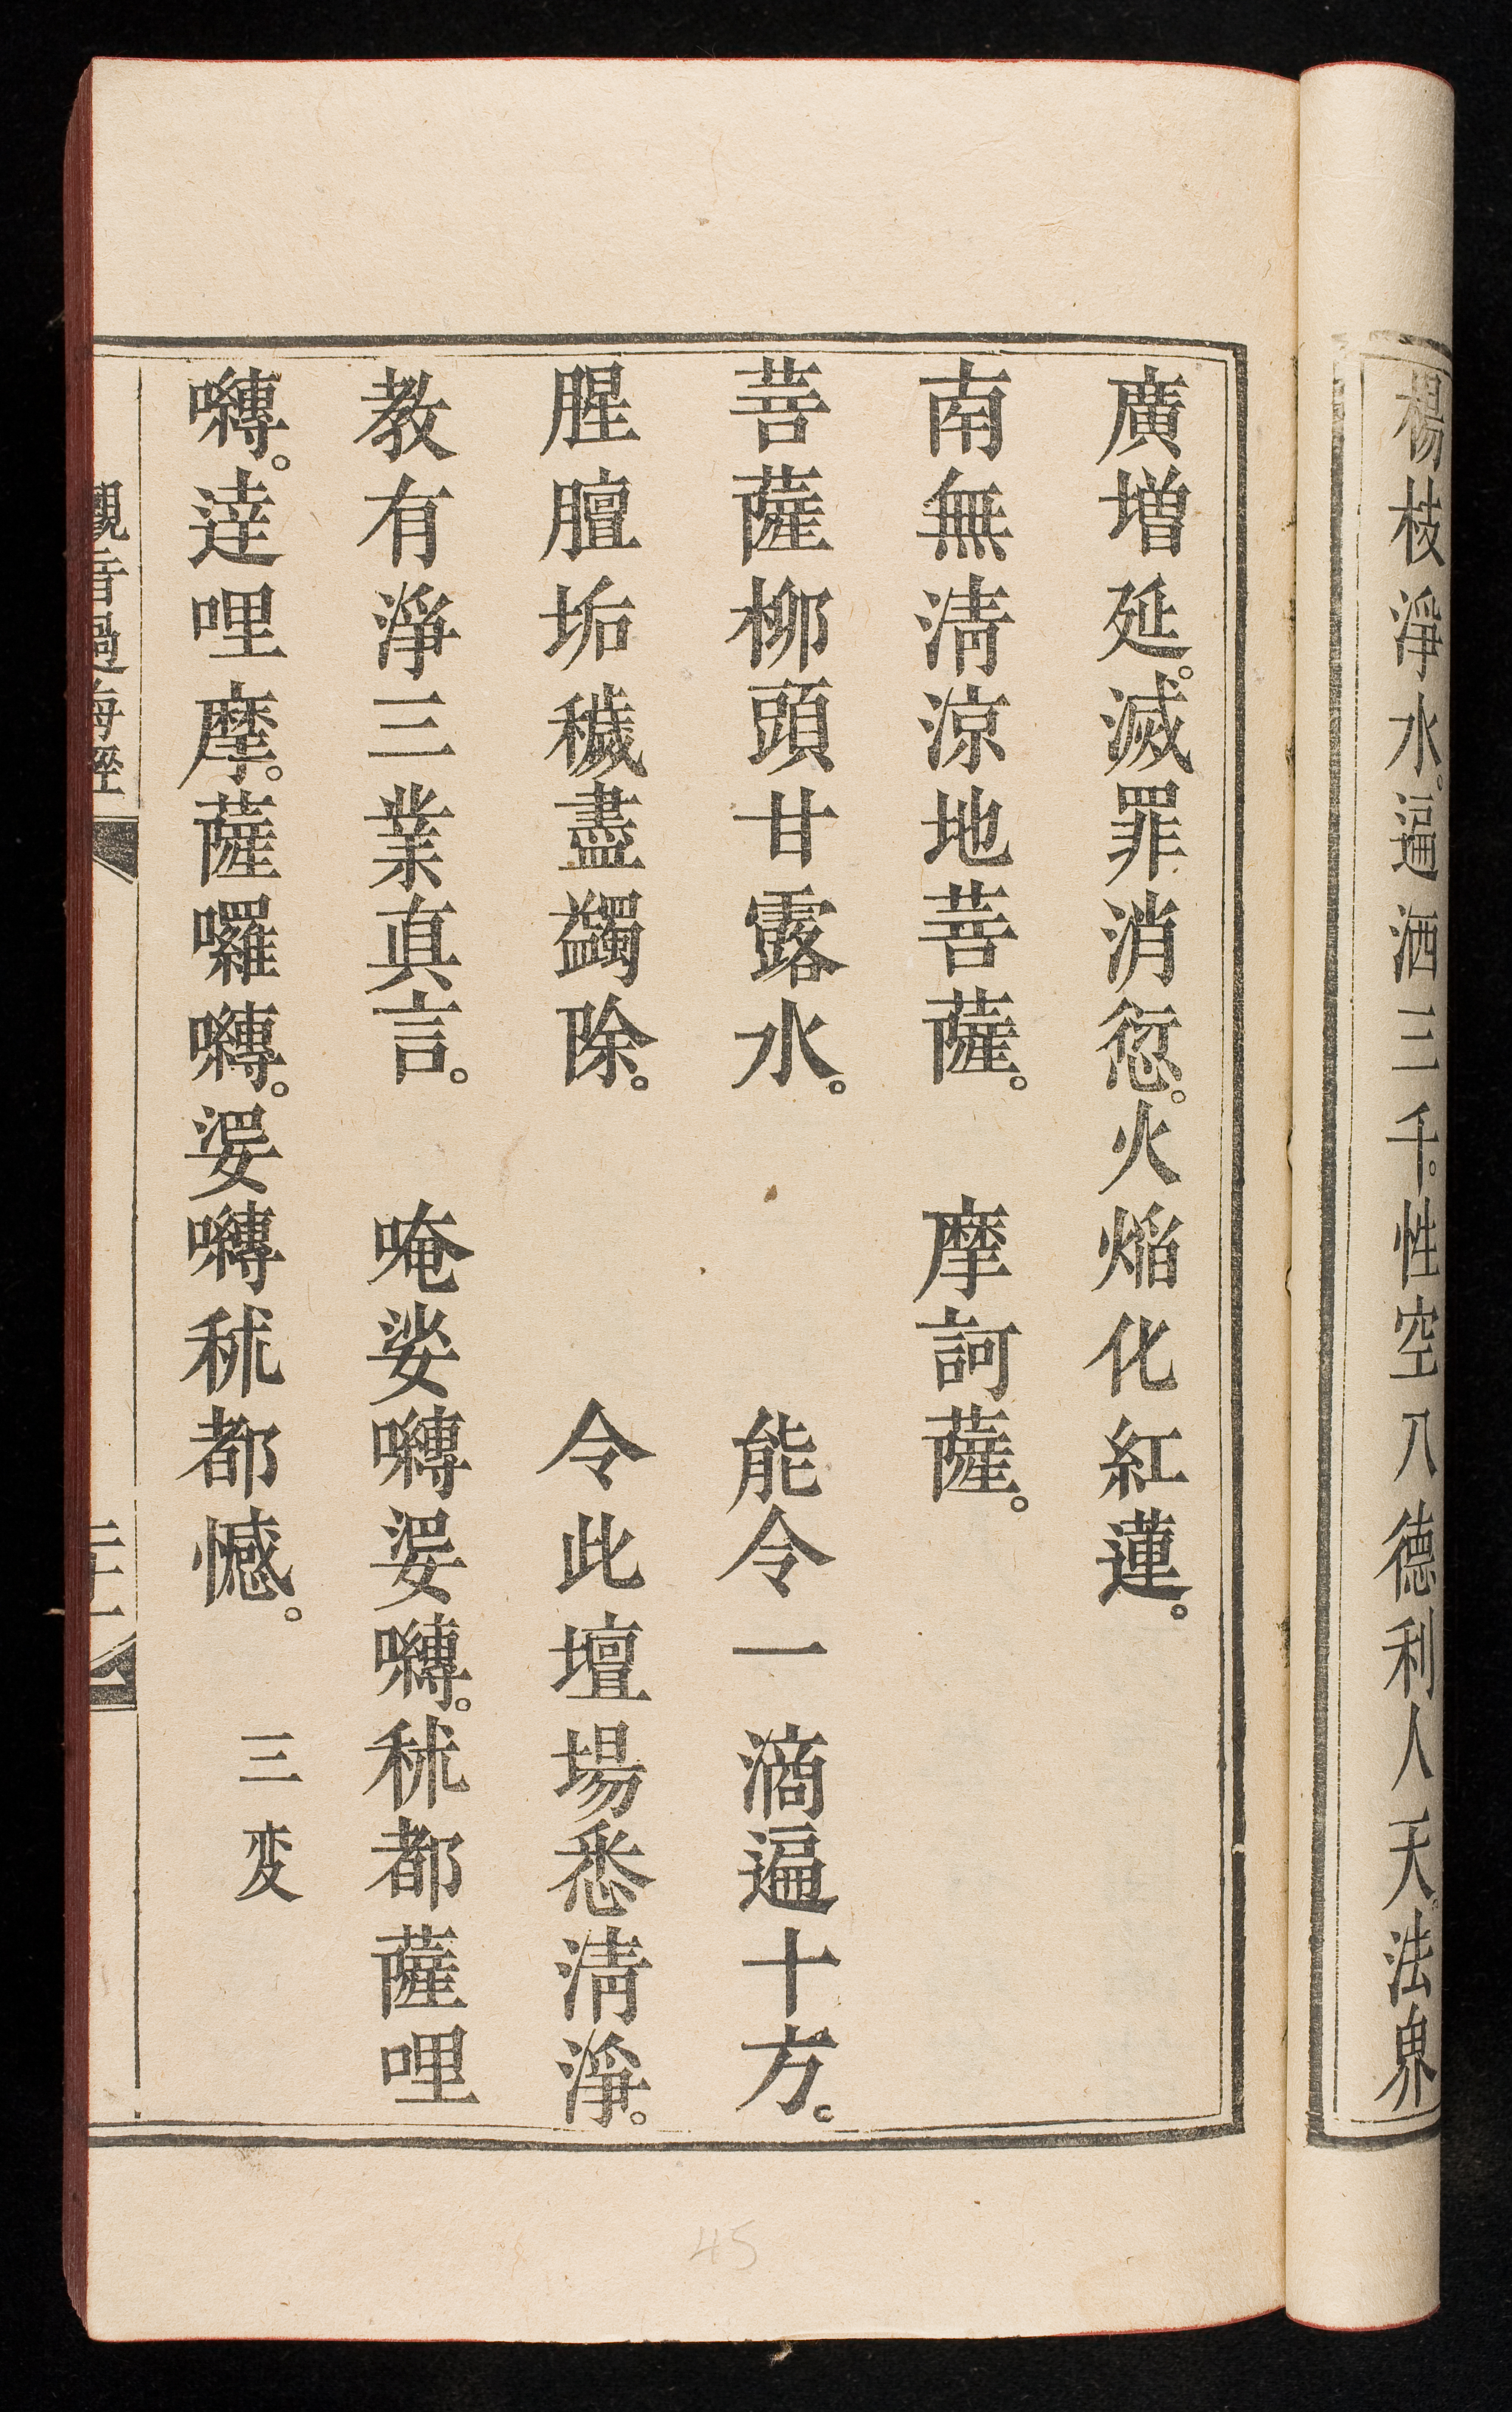 楊枝淨水。遍洒三千。性空八德利人天。法界
廣增延。滅罪消愆。火焰化紅蓮。
南無清涼地菩薩。 摩訶薩。
菩薩柳頭甘露水。 能令一滴遍十方。
腥膻垢穢盡蠲除。 令此壇場悉清淨。
教有淨三業真言。 唵娑囀婆囀。秫都薩哩
囀。達哩摩。薩囉囀。婆囀秫都憾。 三变
觀音過海經
二十一
45